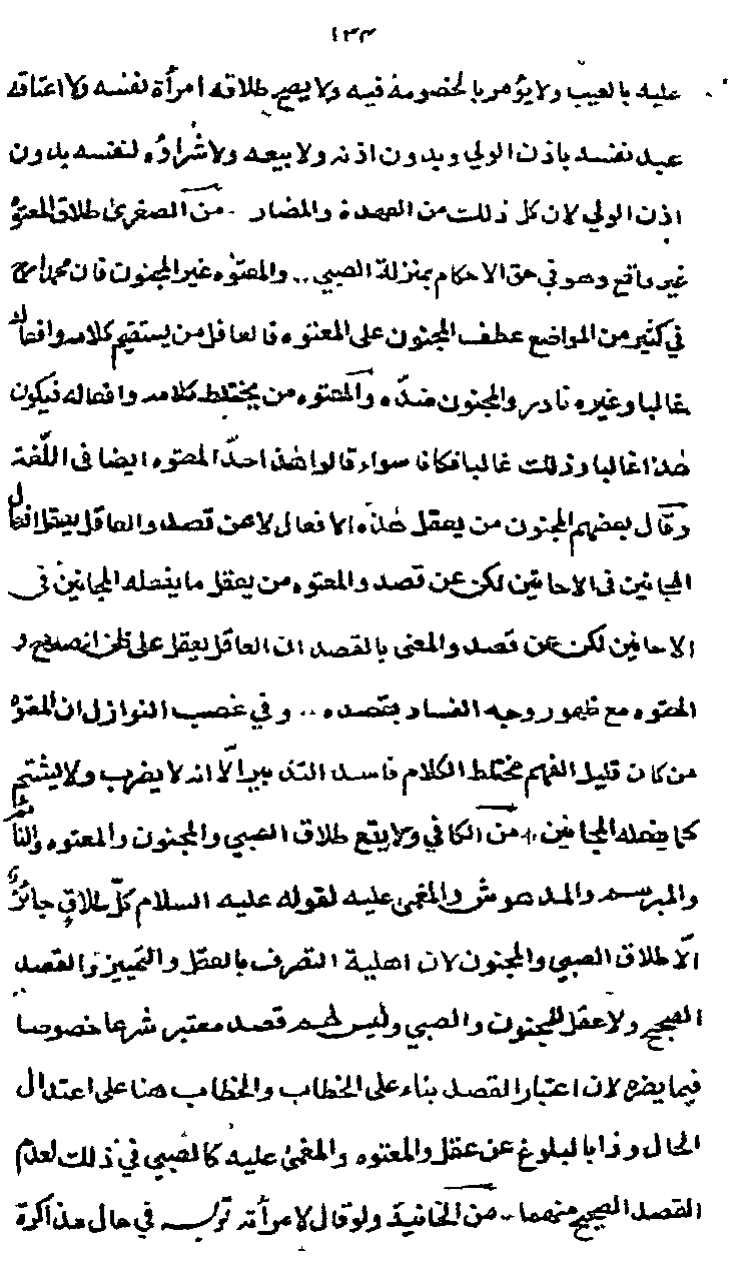 ١٣٣
عليه بالعيب ولا يؤمر بالخصومة فيه ولا يصح طلاقه امرأة نفسه ولا اعتاقه
عبد نفسه باذن الولي وبدون اذنه ولا بيعه ولا شراؤه لنفسه بدون
اذن الولي لان كل ذلك من العهدة والمضار .. من الصغرى طلاق المعتوه
غير واقع وهو في حق الاحكام بمنزلة الصبي .. والمعتوه غير المجنون فان محمدا رح
في كثير من المواضع عطف المجنون على المعتوه فالعاقل من يستقيم كلامه وافعاله
غالبا وغيره نادر والمجنون ضدّه والمعتوه من يختلط كلامه وافعاله فيكون
هذا غالبا وذلك غالبا فكانا سواء قالوا هذا حدّ المعتوه ايضا في اللّغة
وقال بعضهم المجنون من يعقل هذه الافعال لا عن قصد والعاقل يعقل افعال
المجانين في الاحانين لكن عن قصد والمعتوه من يعقل ما يفعله المجانين في
الاحانين لكن عن قصد والمعنى بالقصد ان العاقل يعقل على ظن انه صح و
المعتوه مع ظهور وجه الفساد بقصده .. وفي غصب النوازل ان المعتوه
من كان قليل الفهم مختلط الكلام فاسد التدبير الّا انه لا يضرب ولا يشتم
كما يفعله المجانين .. من الكافي ولا يقع طلاق الصبي والمجنون والمعتوه والنائم
والمبرسم والمدهوش والمغمى عليه لقوله عليه السلام كلّ طلاقٍ جائزٌ
الّا طلاق الصبي والمجنون لان اهلية التصرف بالعقل والتمييز والقصد
الصحيح ولا عقل للمجنون والصبي وليس لهم قصد معتبر شرعا خصوصا
فيما يضره لان اعتبار القصد بناء على الخطاب والخطاب هنا على اعتدال
الحال وذا بالبلوغ عن عقل والمعتوه والمغمى عليه كالصبي في ذلك لعدم
القصد الصحيح منهما .. من الخانية ولو قال لامرأته في حال مذاكرة